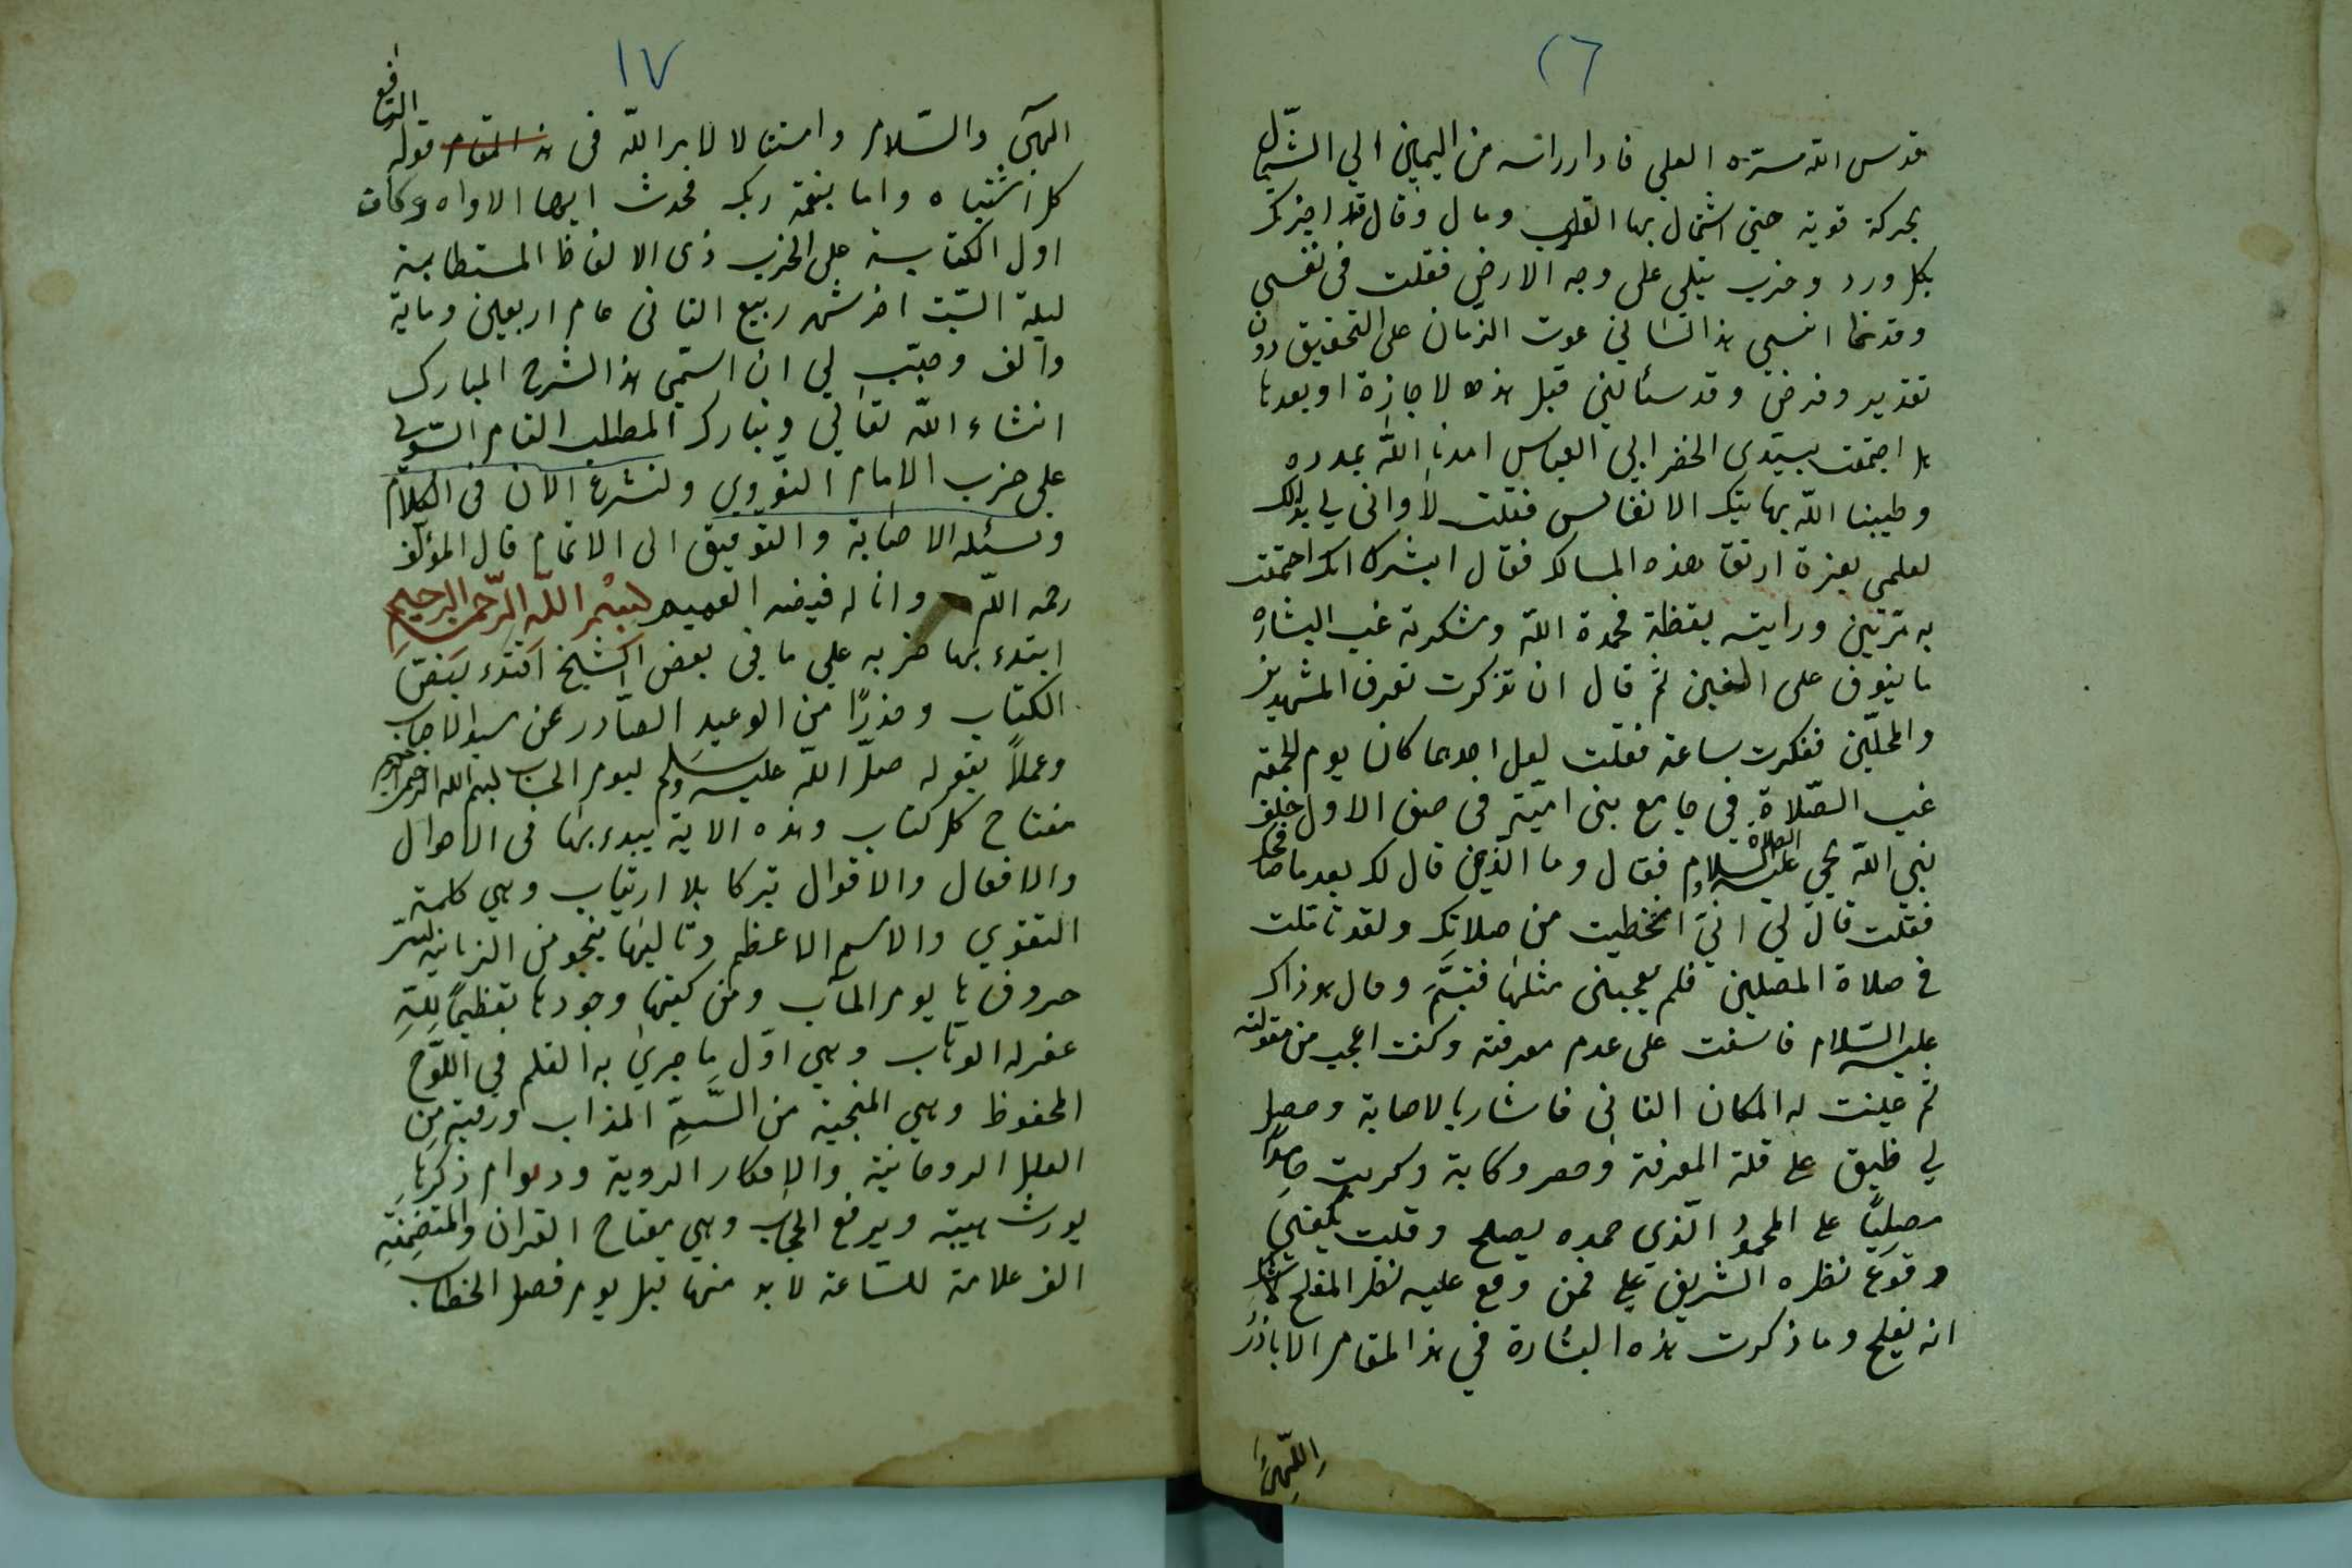 ١٦
قدس الله سره العلي فادار راسه من اليمين الي الشمال
بحركة قوية حتي اشتمال بها القلب ومال وقال قد اجزتك
بكل ورد وحزب يتلي على وجه الارض فقلت فى نفسي
وقد نما انسي هذا الثاني غوث الزمان على التحقيق دون
تقدير وفرض وقد سئالني قبل هذه لاجازة او بعدها
هل اجتمعت بسيدى الخضر ابي العباس امدنا الله بمدده
وطيبنا الله بهاتيك الانفاس فقلت لا وانى لي بذلك
لعلمي بعزة ارتقا هذه المسالك فقال ابشرك انك اجتمعت
به مرتين ورايته يقظة فحمدة الله وشكرته غب البشاره
ما ينوف على الفين ثم قال ان تذكرت تعرف المشهدين
والمحلين ففكرت ساعة فقلت لعل احدهما كان يوم الجمعة
غب الصلاة في جامع بنى امية فى صف الاول خلف
نبي الله يحي عليه الصلاة والسلام فقال وما الذي قال لك بعد ما صافحك
فقلت قال لي انني انحظيت من صلاتك ولقد تاملت
في صلاة المصلين فلم يعجبنى مثلها فتبسم وقال هو ذاك
عليه السلام فاسفت على عدم معرفته وكنت اعجب من مقولته
ثم عينت له المكان الثانى فاشار بالاصابة وحصل
لي ضيق على قلة المعرفة وحصر وكابة وكررت حامدا
مصليا على المحمود الذى حمده يصلح وقلت يكفينى
وقوع نظره الشريف علي فمن وقع عليه نظر المفلح لاشك
انه يفلح وما ذكرت هذه البشارة في هذا المقام الا باذن
اللهي
١٧
الهي والسلام وامتثالا لامر الله فى هذا المقام قوله الرافع
كل اشتباه واما بنعمة ربك فحدث ايها الاواه وكان
اول الكتابة على الحزب ذى الالفاظ المستطابة
ليلة السبت اخر شهر ربيع الثانى عام اربعين وماية
والف وحبب لي ان اسمي هذا الشرح المبارك
انشاء الله تعالي وتبارك المطلب التام السوي
على حزب الامام النووي ولنشرع الان فى الكلام
ونسئله الاصابة والتوفيق الى الاتمام قال المؤلف
رحمه الله وانا له فيضه العميم بسم الله الرحمن الرحيم
ابتدء بها حزبه علي ما في بعض النسخ اقتدء بنص
الكتاب وحذرا من الوعيد الصادر عن سيد الاحباب
وعملا بقوله صلى الله عليه وسلم ليوم الحساب بسم الله الرحمن الرحيم
مفتاح كل كتاب وهذه الاية يبدء بها فى الاحوال
والافعال والاقوال تبركا بلا ارتياب وهي كلمة
التقوي والاسم الاعظم وتاليها ينجو من الزبانية لسر
حروفها يوم المآب ومن كتبها وجودها تعظيما لله
غفر له الوهاب وهي اول ما جري به القلم في اللوح
المحفوظ وهي المنجية من السم المذاب ورقية من
العلل الروحانية والافكار الردية ودوام ذكرها
يورث هيبة ويرفع الحجاب وهي مفتاح القران والمتضمنة
الف علامة للساعة لابد منها قبل يوم فصل الخطاب